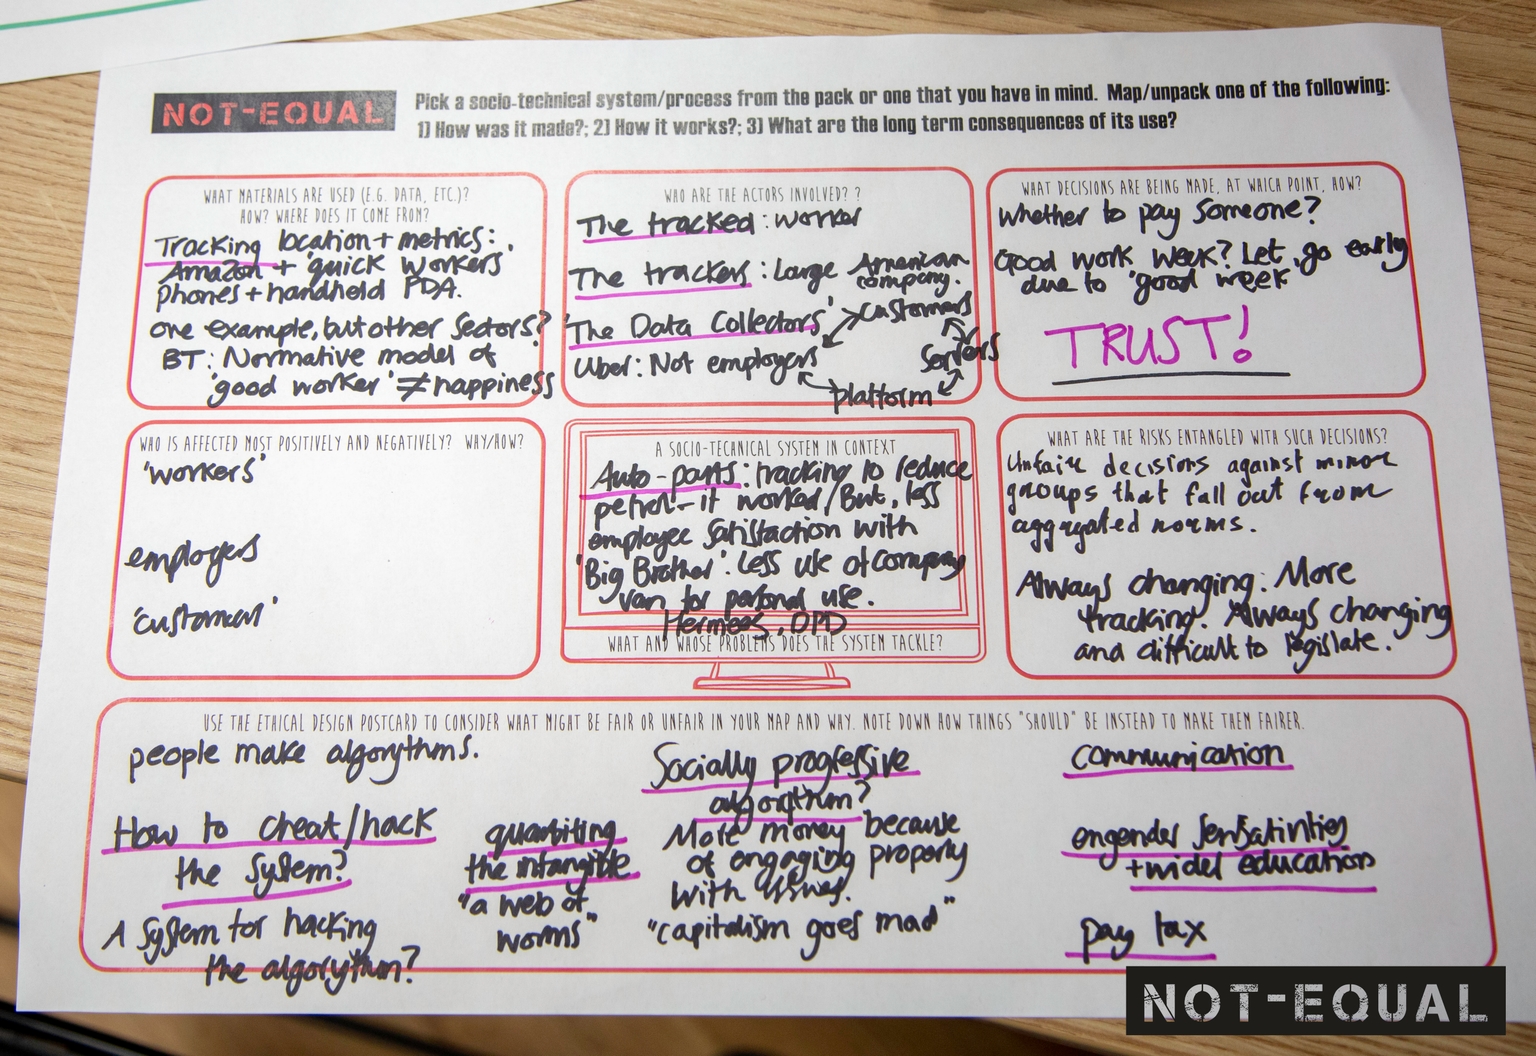 NOT-EQUAL
Pick a socio-technical system/process from the pack or one that you have in mind. Map/unpack one of the following:
1) How was it made?; 2) How it works?; 3) What are the long term consequences of its use?
WHAT MATERIALS ARE USED (E.G. DATA, ETC.)?
HOW? WHERE DOES IT COME FROM?
Tracking location + metrics:
Amazon + 'quick workers'
phones + handheld PDA.
one example, but other sectors?
BT: Normative model of
'good worker' ≠ happiness
WHO ARE THE ACTORS INVOLVED? ?
The tracked: worker
The trackers: Large American
company.
'The Data Collectors' customers
Uber: Not employers
platform
WHAT DECISIONS ARE BEING MADE, AT WHICH POINT, HOW?
Whether to pay someone?
Good work week? Let go early
due to 'good week'
TRUST!
WHO IS AFFECTED MOST POSITIVELY AND NEGATIVELY? WHY/HOW?
'workers'
employers
'customer'
A SOCIO-TECHNICAL SYSTEM IN CONTEXT
Auto-parts: tracking to reduce
petrol - it worked/But, less
employee satisfaction with
'Big Brother'. Less use of company
van for personal use.
Hermees, DPD
WHAT AND WHOSE PROBLEMS DOES THE SYSTEM TACKLE?
WHAT ARE THE RISKS ENTANGLED WITH SUCH DECISIONS?
Unfair decisions against minor
groups that fall out from
aggregated norms.
Always changing: More
tracking. Always changing
and difficult to legislate.
USE THE ETHICAL DESIGN POSTCARD TO CONSIDER WHAT MIGHT BE FAIR OR UNFAIR IN YOUR MAP AND WHY. NOTE DOWN HOW THINGS "SHOULD" BE INSTEAD TO MAKE THEM FAIRER.
people make algorythms.
How to cheat/hack
the system?
A system for hacking
the algorythm?
the intangible
"a web of
worms"
Socially progressive
algorythm?
More money because
of engaging properly
with issues.
"capitalism goes mad"
communication
engender
+ wider education
pay tax
NOT-EQUAL